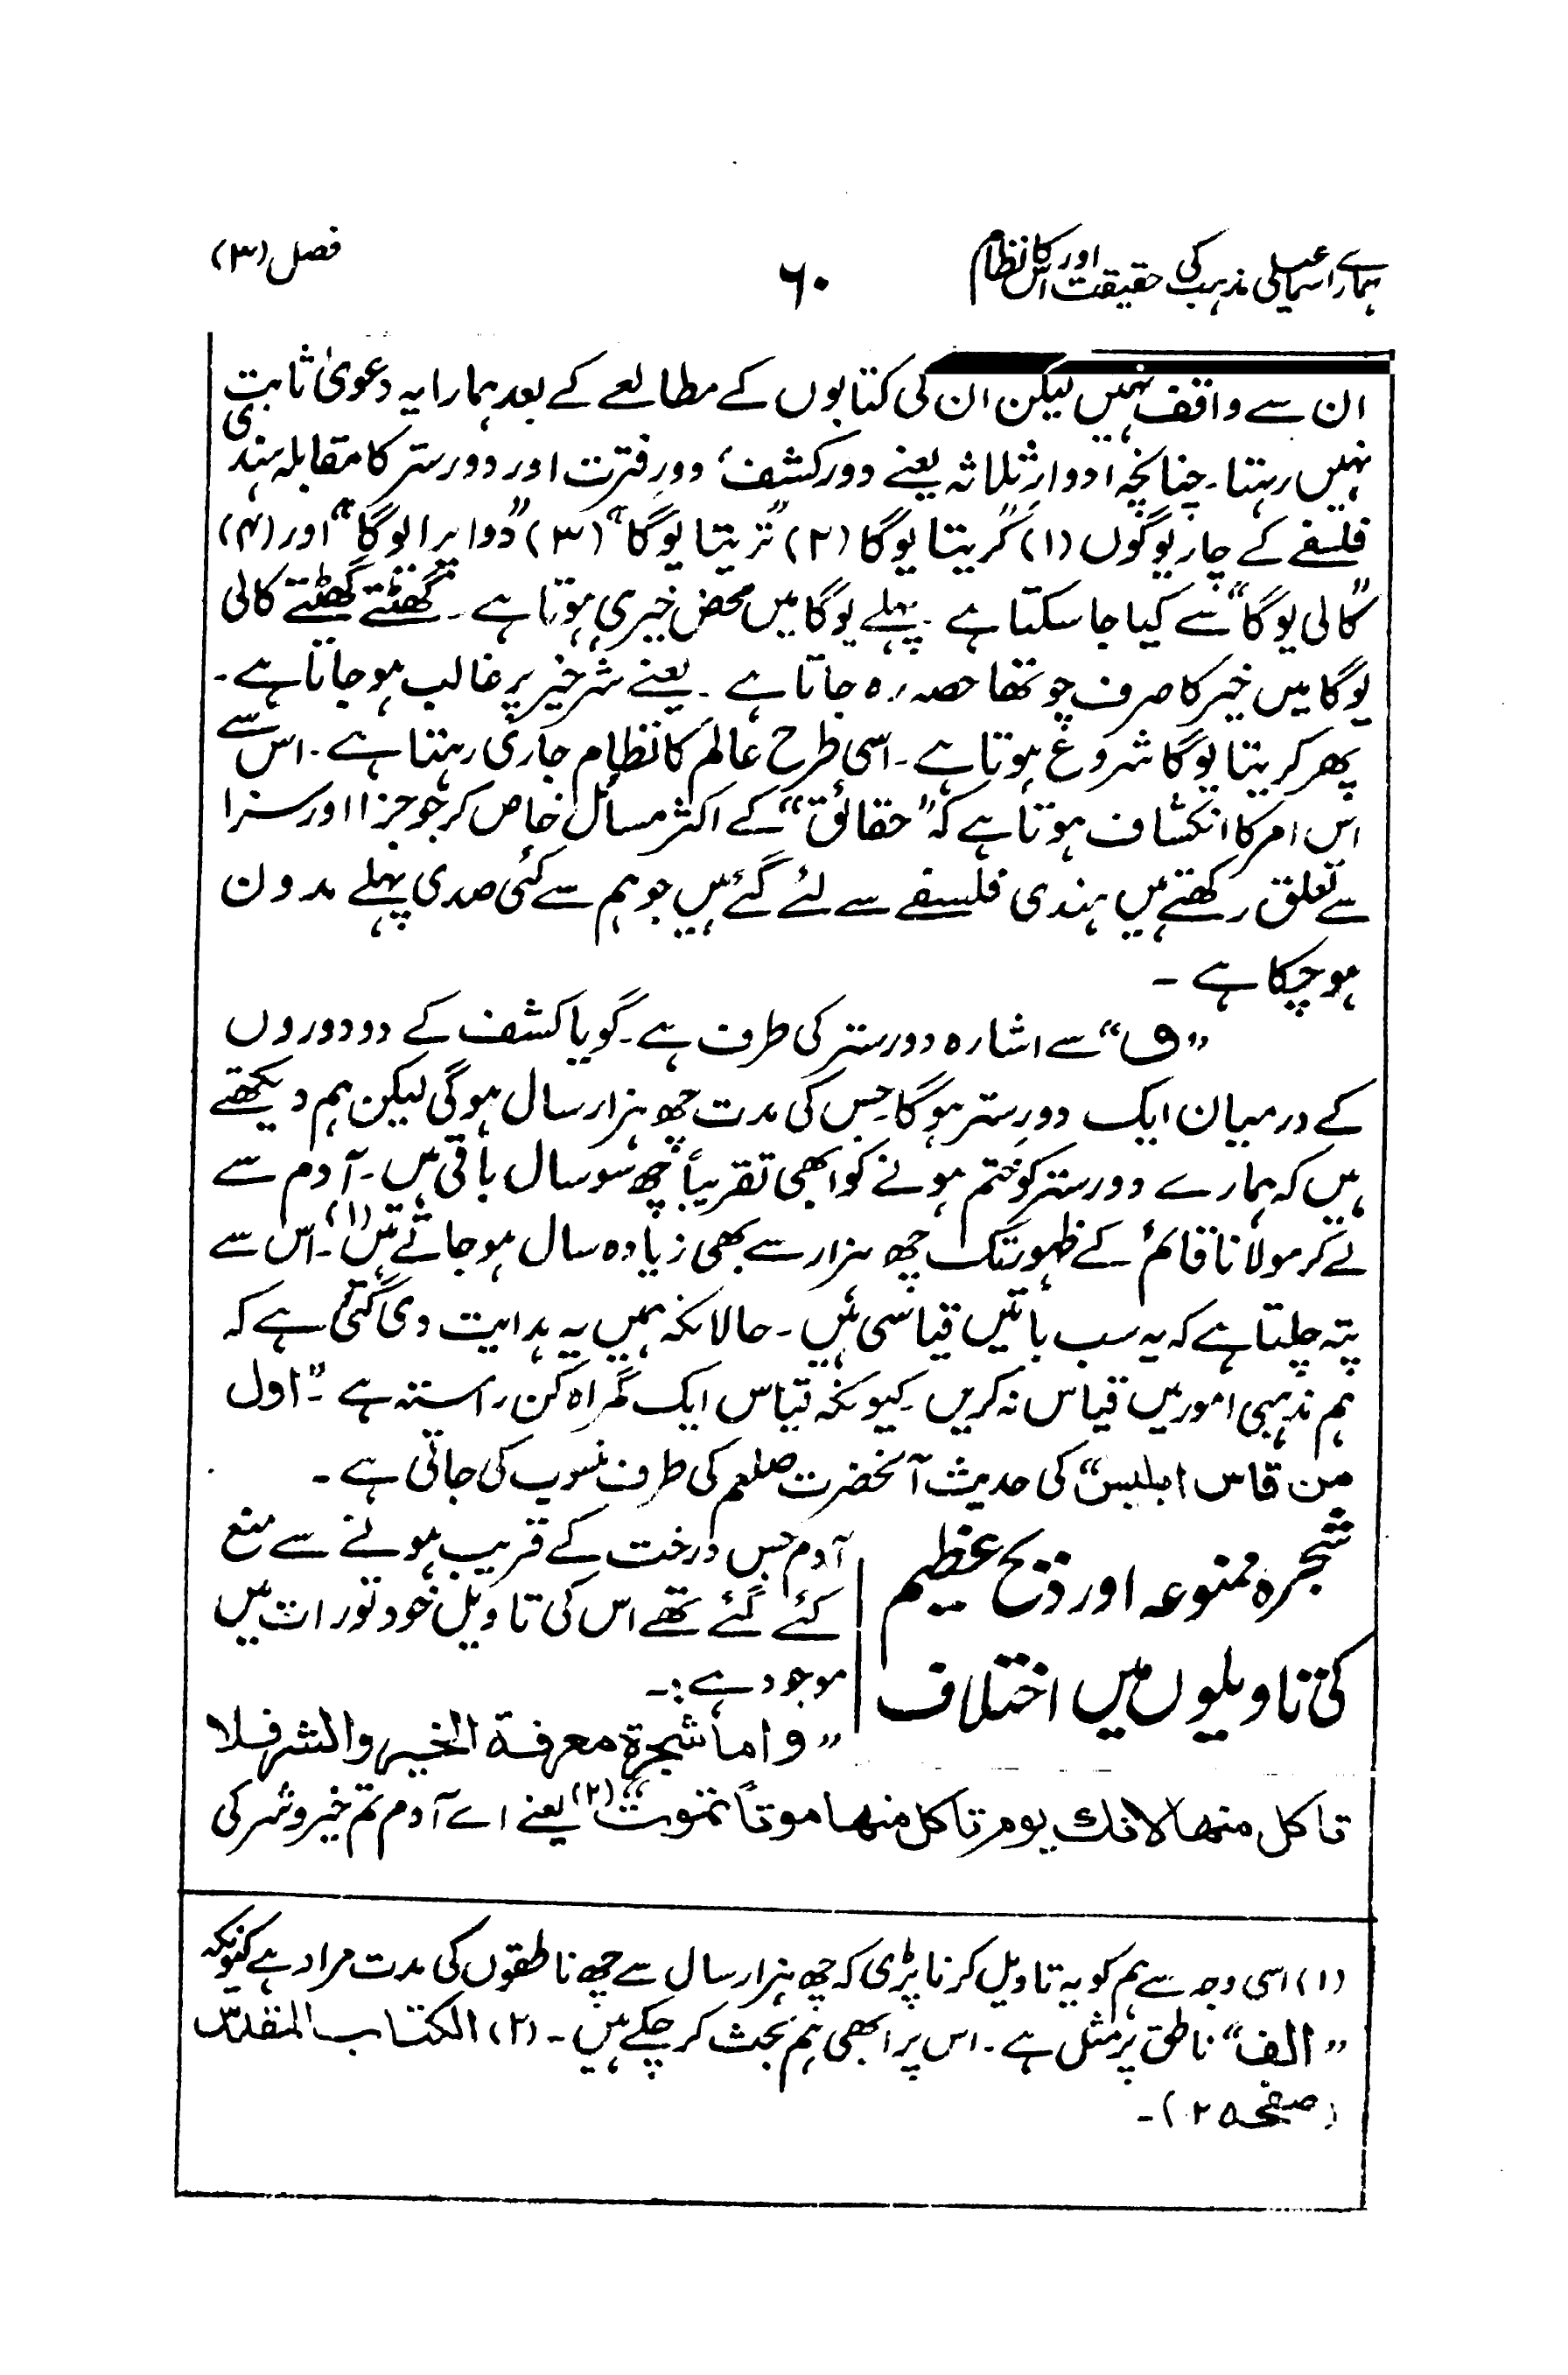 ہمارے اسماعیلی مذہب کی حقیقت اور اس کا نظام
۶۰
فصل (۳)
ان سے واقف نہیں لیکن ان کی کتابوں کے مطالعے کے بعد ہمارا یہ دعویٰ ثابت
نہیں رہتا۔ چنانچہ ادوارِ ثلاثہ یعنے دور کشف، دورِ فترت اور دور ستر کا مقابلہ ہندی
فلسفے کے چار یوگوں (۱) "کریتا یوگا (۲) "تریتا یوگا" (۳) "دواپرا یوگا" اور (۴)
"کالی یوگا" سے کیا جا سکتا ہے۔ پہلے یوگا میں محض خیر ہی ہوتا ہے۔ گھٹتے گھٹتے کالی
یوگا میں خیر کا صرف چوتھا حصہ رہ جاتا ہے۔ یعنے شر خیر پر غالب ہو جاتا ہے۔
پھر کریتا یوگا شروع ہوتا ہے۔ اسی طرح عالم کا نظام جاری رہتا ہے۔ اس سے
اس امر کا انکشاف ہوتا ہے کہ "حقائق" کے اکثر مسائل خاص کر جو جزا اور سزا
سے تعلق رکھتے ہیں ہندی فلسفے سے لئے گئے ہیں جو ہم سے کئی صدی پہلے مدون
ہو چکا ہے۔
"ق" سے اشارہ دور ستر کی طرف ہے۔ گویا کشف کے دو دوروں
کے درمیان ایک دورِ ستر ہوگا جس کی مدت چھ ہزار سال ہوگی لیکن ہم دیکھتے
ہیں کہ ہمارے دور ستر کو ختم ہونے کو ابھی تقریباً چھ سو سال باقی ہیں۔ آدم سے
لے کر مولانا قائم کے ظہور تک چھ ہزار سے بھی زیادہ سال ہو جاتے ہیں (۱)۔ اس سے
پتہ چلتا ہے کہ یہ سب باتیں قیاسی ہیں۔ حالانکہ ہمیں یہ ہدایت دی گئی ہے کہ
ہم مذہبی امور میں قیاس نہ کریں۔ کیونکہ قیاس ایک گمراہ کن راستہ ہے۔ "اول
من قاس ابلیس" کی حدیث آنحضرت صلعم کی طرف منسوب کی جاتی ہے۔
شجرہ ممنوعہ اور ذبح عظیم
کی تاویلوں میں اختلاف
آدم جس درخت کے قریب ہونے سے منع
کئے گئے تھے اس کی تاویل خود تورات میں
موجود ہے:۔
"واما شجرة معرفة الخير والشر فلا
تاكل منها لانك يوم تاكل منها موتاً تموت" (۲) یعنے اے آدم تم خیر و شر کی
(۱) اسی وجہ سے ہم کو یہ تاویل کرنا پڑی کہ چھ ہزار سال سے چھ ناطقوں کی مدت مراد ہے کیونکہ
"الف" ناطق پر مثل ہے۔ اس پر ابھی ہم بحث کر چکے ہیں۔ (۲) الکتاب المقدس
(صفحہ ۲۵)۔